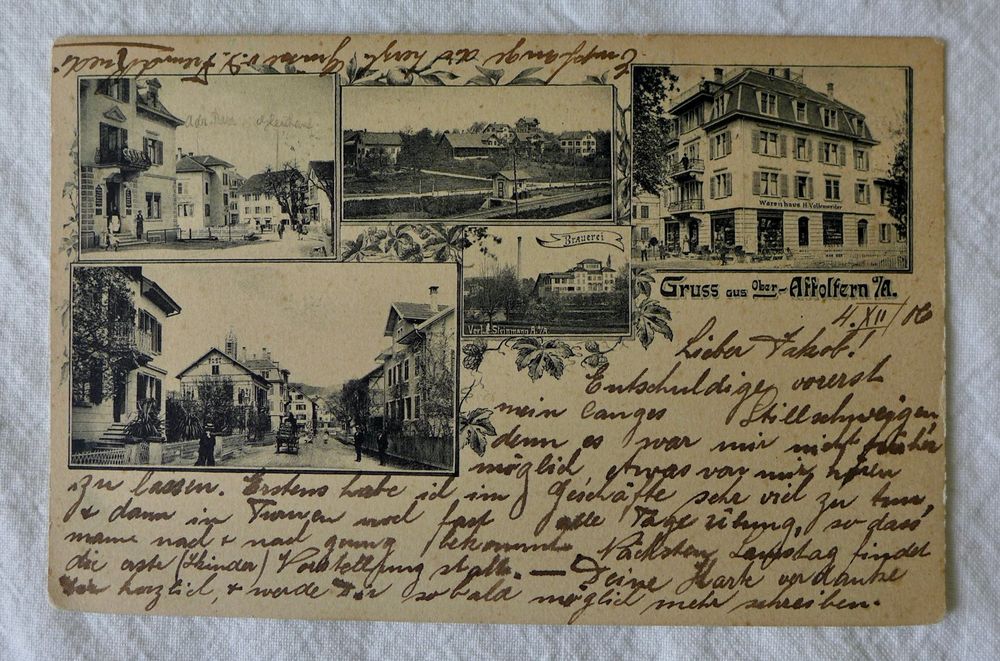 Empfange die herzl. Grüsse v. D. Freund
Brauerei
Warenhaus H. Vollenweider
POST
Verl. Steinmann A. a/A
Gruss aus Ober-Affoltern a/A.
4. XII 06
Lieber Jakob!
Entschuldige vorerst
mein langes Stillschweigen,
denn es war mir nicht früher
möglich etwas von mir hören
zu lassen. Erstens habe ich im Geschäfte sehr viel zu tun,
& dann in Turnen wird fast alle Tage übung, so dass
mann nach & nach genug bekommt. Nächsten Samstag findet
die erste (Kinder) Vorstellung statt. — Deine Karte verdanke
Dir herzlich, & werde Dir sobald möglich mehr schreiben.